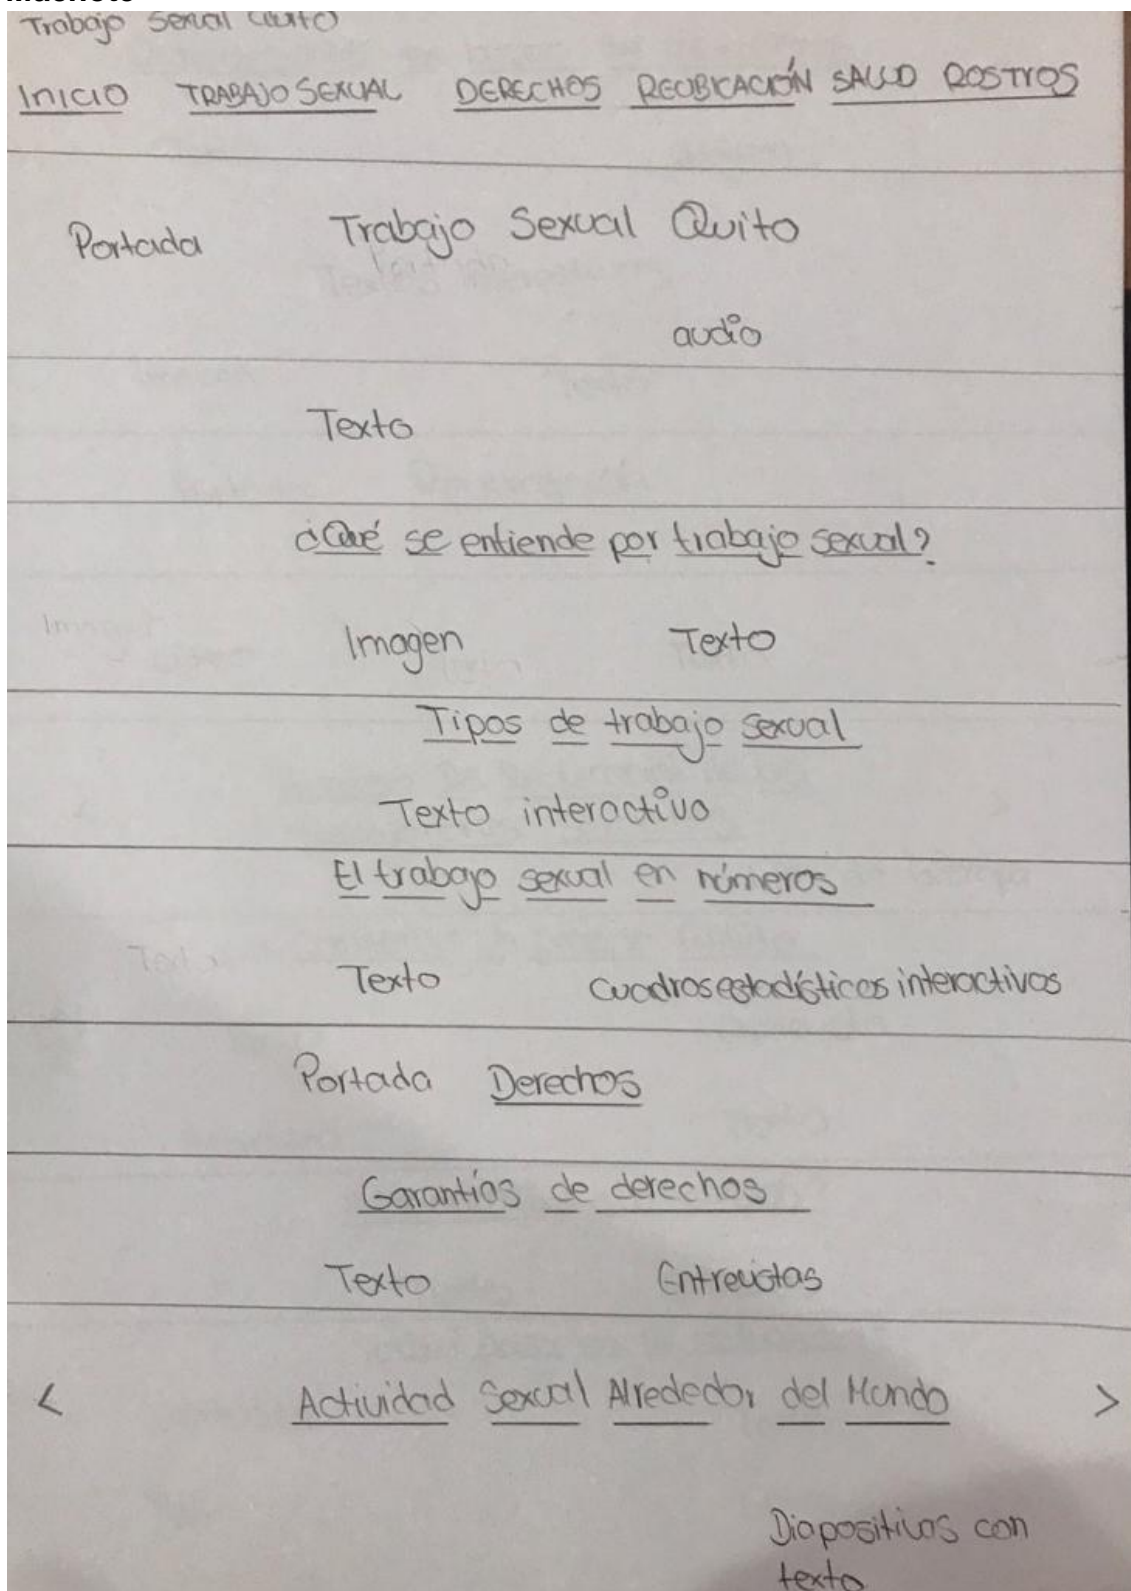 Trabajo Sexual Quito
INICIO TRABAJO SEXUAL DERECHOS REUBICACIÓN SALUD ROSTROS
Portada Trabajo Sexual Quito
audio
Texto
¿Qué se entiende por trabajo sexual?
Imagen Texto
Tipos de trabajo sexual
Texto interactivo
El trabajo sexual en números
Texto cuadros estadísticos interactivos
Portada Derechos
Garantías de derechos
Texto Entrevistas
< Actividad Sexual Alrededor del Mundo >
Diapositivas con
texto